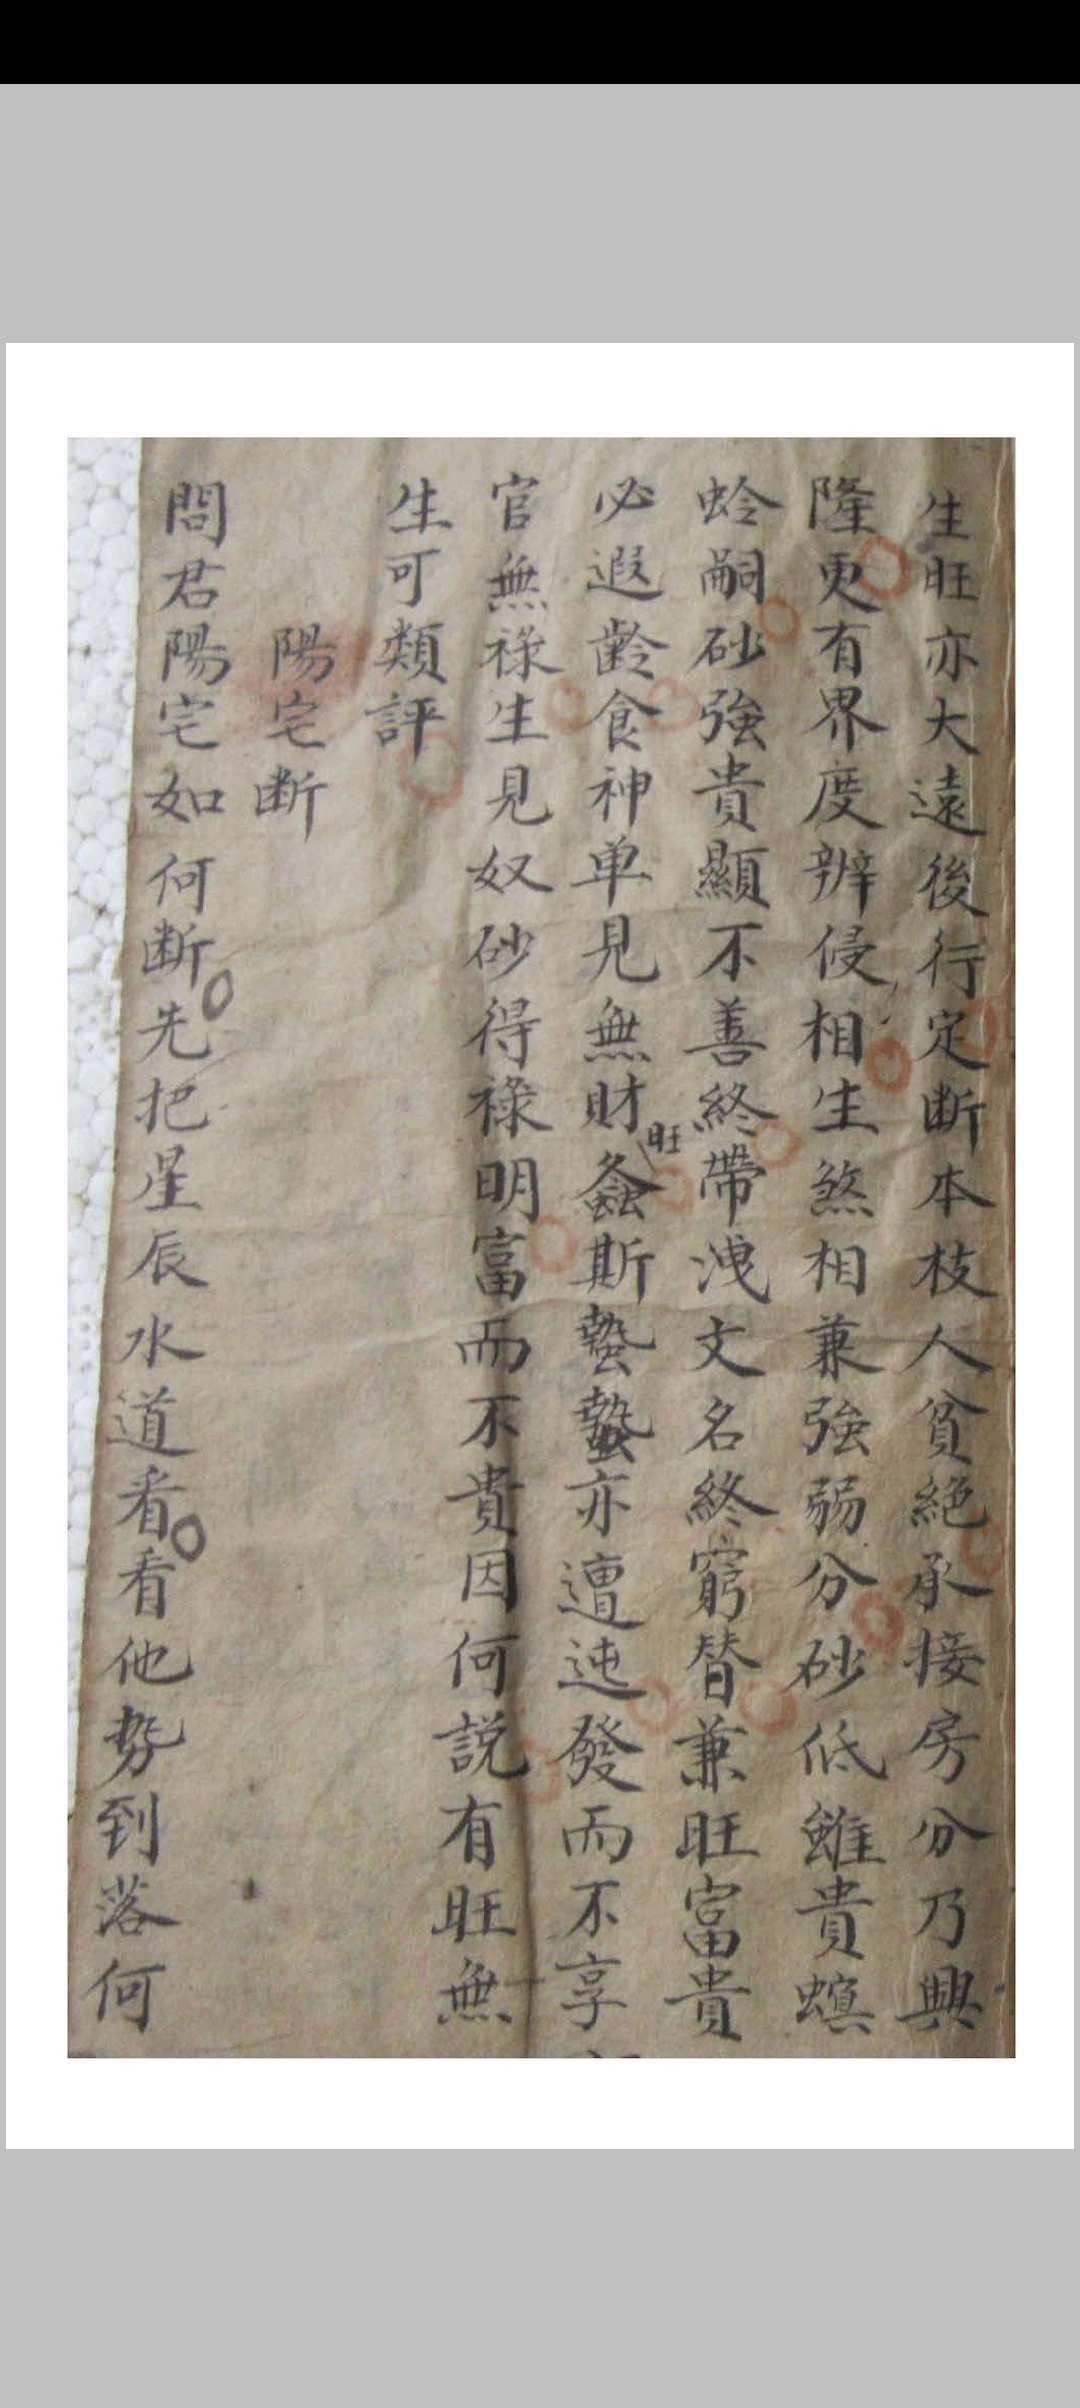 生旺亦大遠後行定断本枝人貧絕承接房分乃興
隆更有界度辨侵相生煞相兼強弱分砂低雖貴螟
蛉嗣砂強貴顯不善終帶洩文名終窮替兼旺富貴
必遐齡食神单見無財旺螽斯蟄蟄亦遭迍發而不享
官無祿生見奴砂得祿明富而不貴因何説有旺無
生可類評
陽宅断
問君陽宅如何断先把星辰水道看看他势到落何